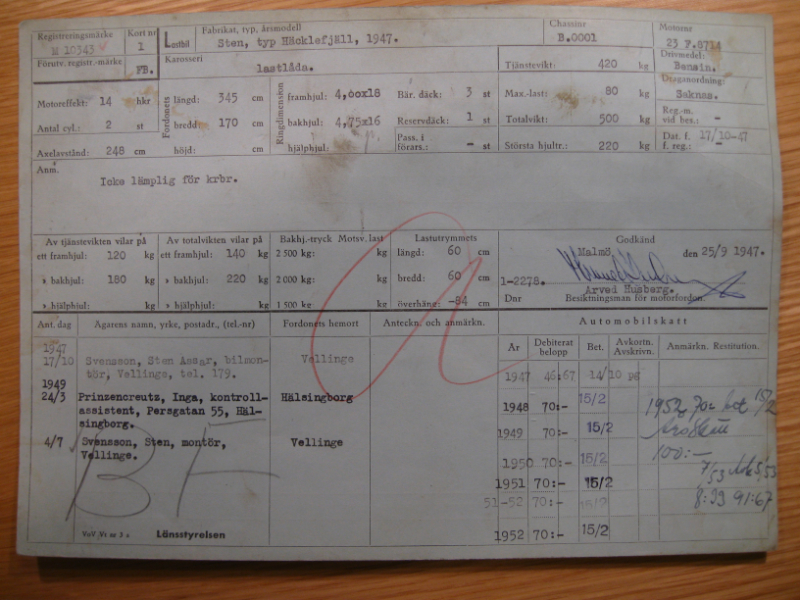 Registreringsmärke
M 10343
Kort nr
1
Lastbil
Fabrikat, typ, årsmodell
Sten, typ Häcklefjäll, 1947.
Chassinr
B.0001
Motornr
23 F.8714
Förutv. registr.-märke
FB.
Karosseri
lastlåda.
Tjänstevikt: 420 kg
Drivmedel:
Bensin.
Motoreffekt: 14 hkr
Fordonets
längd: 345 cm
Ringdimension
framhjul: 4,00x18
Bär. däck: 3 st
Max.-last: 80 kg
Draganordning:
Saknas.
Antal cyl.: 2 st
bredd: 170 cm
bakhjul: 4,75x16
Reservdäck: 1 st
Totalvikt: 500 kg
Reg.-m.
vid bes.: -
Axelavstånd: 248 cm
höjd: cm
hjälphjul:
Pass. i
förars.: - st
Största hjultr.: 220 kg
Dat. f. 17/10-47
f. reg.: -
Anm.
Icke lämplig för krbr.
Av tjänstevikten vilar på
ett framhjul: 120 kg
» bakhjul: 180 kg
» hjälphjul: kg
Av totalvikten vilar på
ett framhjul: 140 kg
» bakhjul: 220 kg
» hjälphjul: kg
Bakhj.-tryck Motsv. last
2 500 kg: kg
2 000 kg: kg
1 500 kg: kg
Lastutrymmets
längd: 60 cm
bredd: 60 cm
överhäng: -84 cm
Godkänd
Malmö den 25/9 1947.
1-2278. Arved Husberg.
Dnr Besiktningsman för motorfordon.
Ant. dag
Ägarens namn, yrke, postadr., (tel.-nr)
Fordonets hemort
Anteckn. och anmärkn.
Automobilskatt
År
Debiterat belopp
Bet.
Avkortn. Avskrivn.
Anmärkn. Restitution.
1947
17/10 Svensson, Sten Assar, bilmon- Vellinge
tör, Vellinge, tel. 179.
1949
24/3 Prinzencreutz, Inga, kontroll- Hälsingborg
assistent, Persgatan 55, Häl-
singborg.
4/7 Svensson, Sten, montör, Vellinge
Vellinge.
BF
1947 46:67 14/10
1948 70:- 15/2
1949 70:- 15/2
1950 70:- 15/2
1951 70:- 15/2
51-52 70:- 15/2
1952 70:- 15/2
100:-
8:33 91:67
VoV Vt nr 3 a Länsstyrelsen